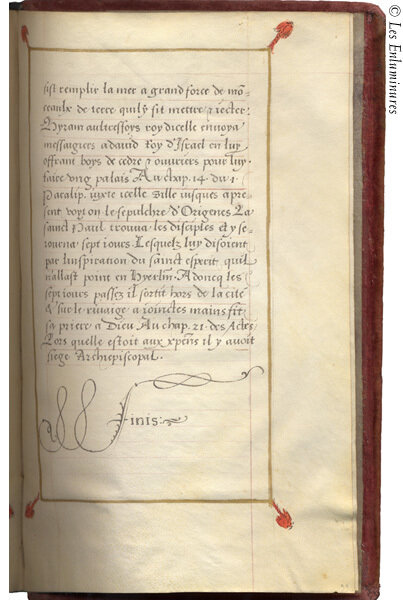 fist remplir la mer a grand force de mõ-
ceaulx de terre quil y fit mettre & iecter.
Hyram aultresfoys roy dicelle envoya
messaigiers a david Roy d'Israel en luy
offrant boys de cedre & ouuriers pour luy
faire ung palais Au chap. 14. du 1.
Paralip. uxte icelle Ville iusques a pre-
sent voyt on le sepulchre d'Origenes La
sainct Paul trouua les disciples et y se-
iourna sept iours. Lesquelz luy disoient
par linspiration du sainct esperit quil
n'allast point en Hyerlm. Adoncq les
sept iours passez il sortit hors de la cité
& sur le riuaige a ioinctes mains fit
sa priere a Dieu Au chap. 21. des Actes
Lors quelle estoit aux xpens il y avoit
siege Archiepiscopal.
Finis:
© Les Enluminures